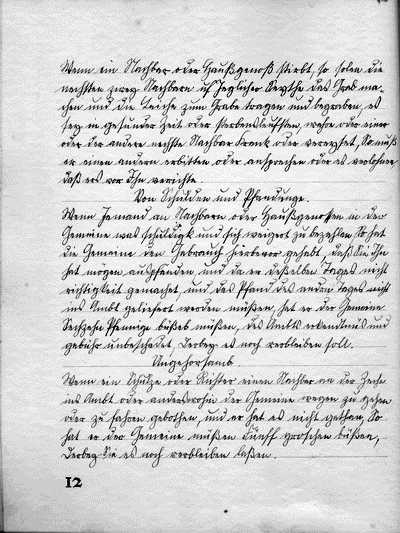 Wenn ein Nachbar oder Haußgenoß stirbt, so solen die
nechsten zwey Nachbarn uf Jeglicher Seythe das Grab ma-
chen und die Leiche zum Grabe tragen und begraben, es
sey in gesunder Zeit oder sterbensleufften, wehre oder einer
oder der andere nechste Nachbar kranck oder verreyset, So muß
er einen andern erbitten oder ansprechen oder es verlohnen
daß ers vor Ihn verrichte.
Von Schulden und Pfandunge.
Wenn Jemand an Nachbarn oder Haußgenossen in der
Gemeine was schuldigk und sich weigert zu bezahlen So hat
die Gemeine den Gebrauch hierbevor gehabt, daß Sie Ihn
hat mögen auspfenden und da er deßelben Tages nicht
richtigkeit gemachet, und das Pfand des andern tages nicht
ins Ambt geliefert worden müßen, hat er der Gemeine
Sechzehn Pfennige büßen müßen, des Ambts erkendtnis und
gebühr unbeschadet, Derbey es noch verbleiben soll.
Ungehorsamb
Wenn ein Schultze oder Richter einen Nachbar an der Zeche
ins Ambt oder anderswohin der Gemeine wegen zu gehen
oder zu fahren gebothen, und er hat es nicht gethan, So
hat er der Gemeine müßen Fünff groschen büßen,
Derbey Sie es noch verbleiben laßen.
12